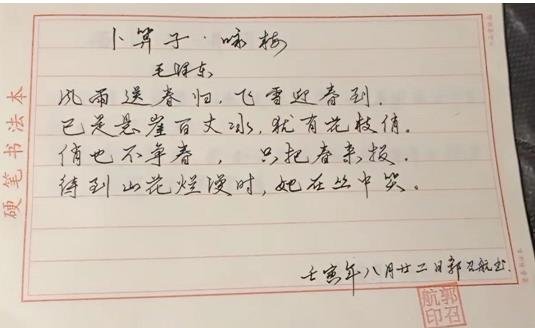 卜算子·咏梅
毛泽东
风雨送春归，飞雪迎春到.
已是悬崖百丈冰，犹有花枝俏.
俏也不争春，只把春来报.
待到山花烂漫时，她在丛中笑。
壬寅年八月廿二日郭召航书.
郭召航印
硬笔书法本